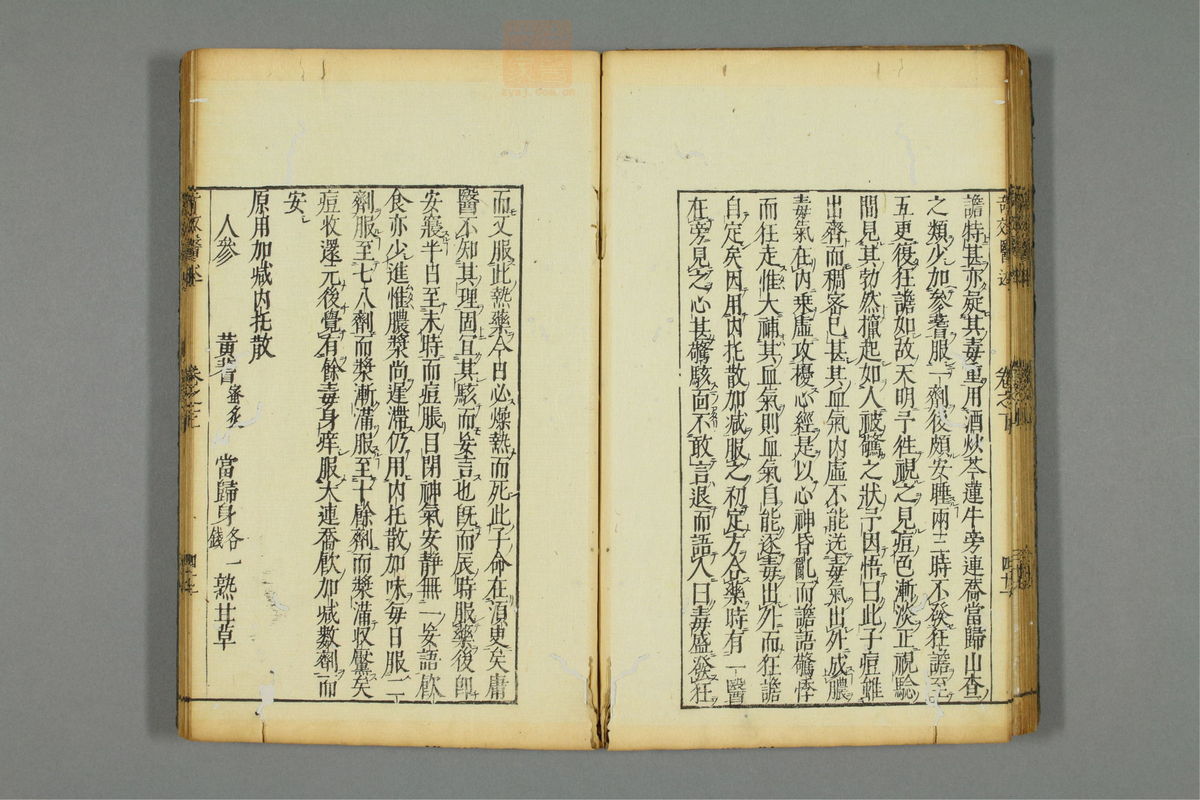 譫特甚亦疑其毒重用酒炒芩蓮牛旁連喬當歸山查
之類少加參耆服一劑後頗安睡兩三時不發狂譫至
五更復狂譫如故天明予徃視之見痘色漸淡正視騐
間見其勃然攛起如人被驚之狀予因悟曰此子痘雖
出齊而稠密已甚其血氣内虛不能送毒氣出外成膿
毒氣在内乗虛攻擾心經是以心神昏亂而譫語驚悸
而狂走惟大補其血氣則血氣自能逐毒出外而狂譫
自定矣因用内托散加减服之初定方合藥時有一醫
在旁見之心甚驚駭面不敢言退而語人曰毒盛發狂
而又服此熱藥今日必燥熱而死此子命在湏臾矣庸
醫不知其理固宜其駭而妄言也旣而辰時服藥後卽
安寢半日至未時而痘脹目閉神氣安靜無一妄語飮
食亦少進惟膿漿尚遲滯仍用内托散加味每日服一
劑服至七八劑而漿漸滿服至十餘劑而漿滿收靨矣
痘收還元後覺有餘毒身痒服大連喬飮加减數劑而
安
原用加减内托散
人參 黃耆蜜炙 當歸身各一錢 熟甘草
奇效醫述
卷之下